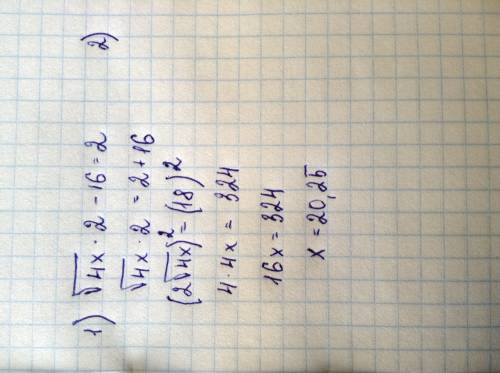 1) √4x · 2 - 16 = 2
√4x · 2 = 2 + 16
(2√4x)² = (18)²
4 · 4x = 324
16x = 324
x = 20,25
2)